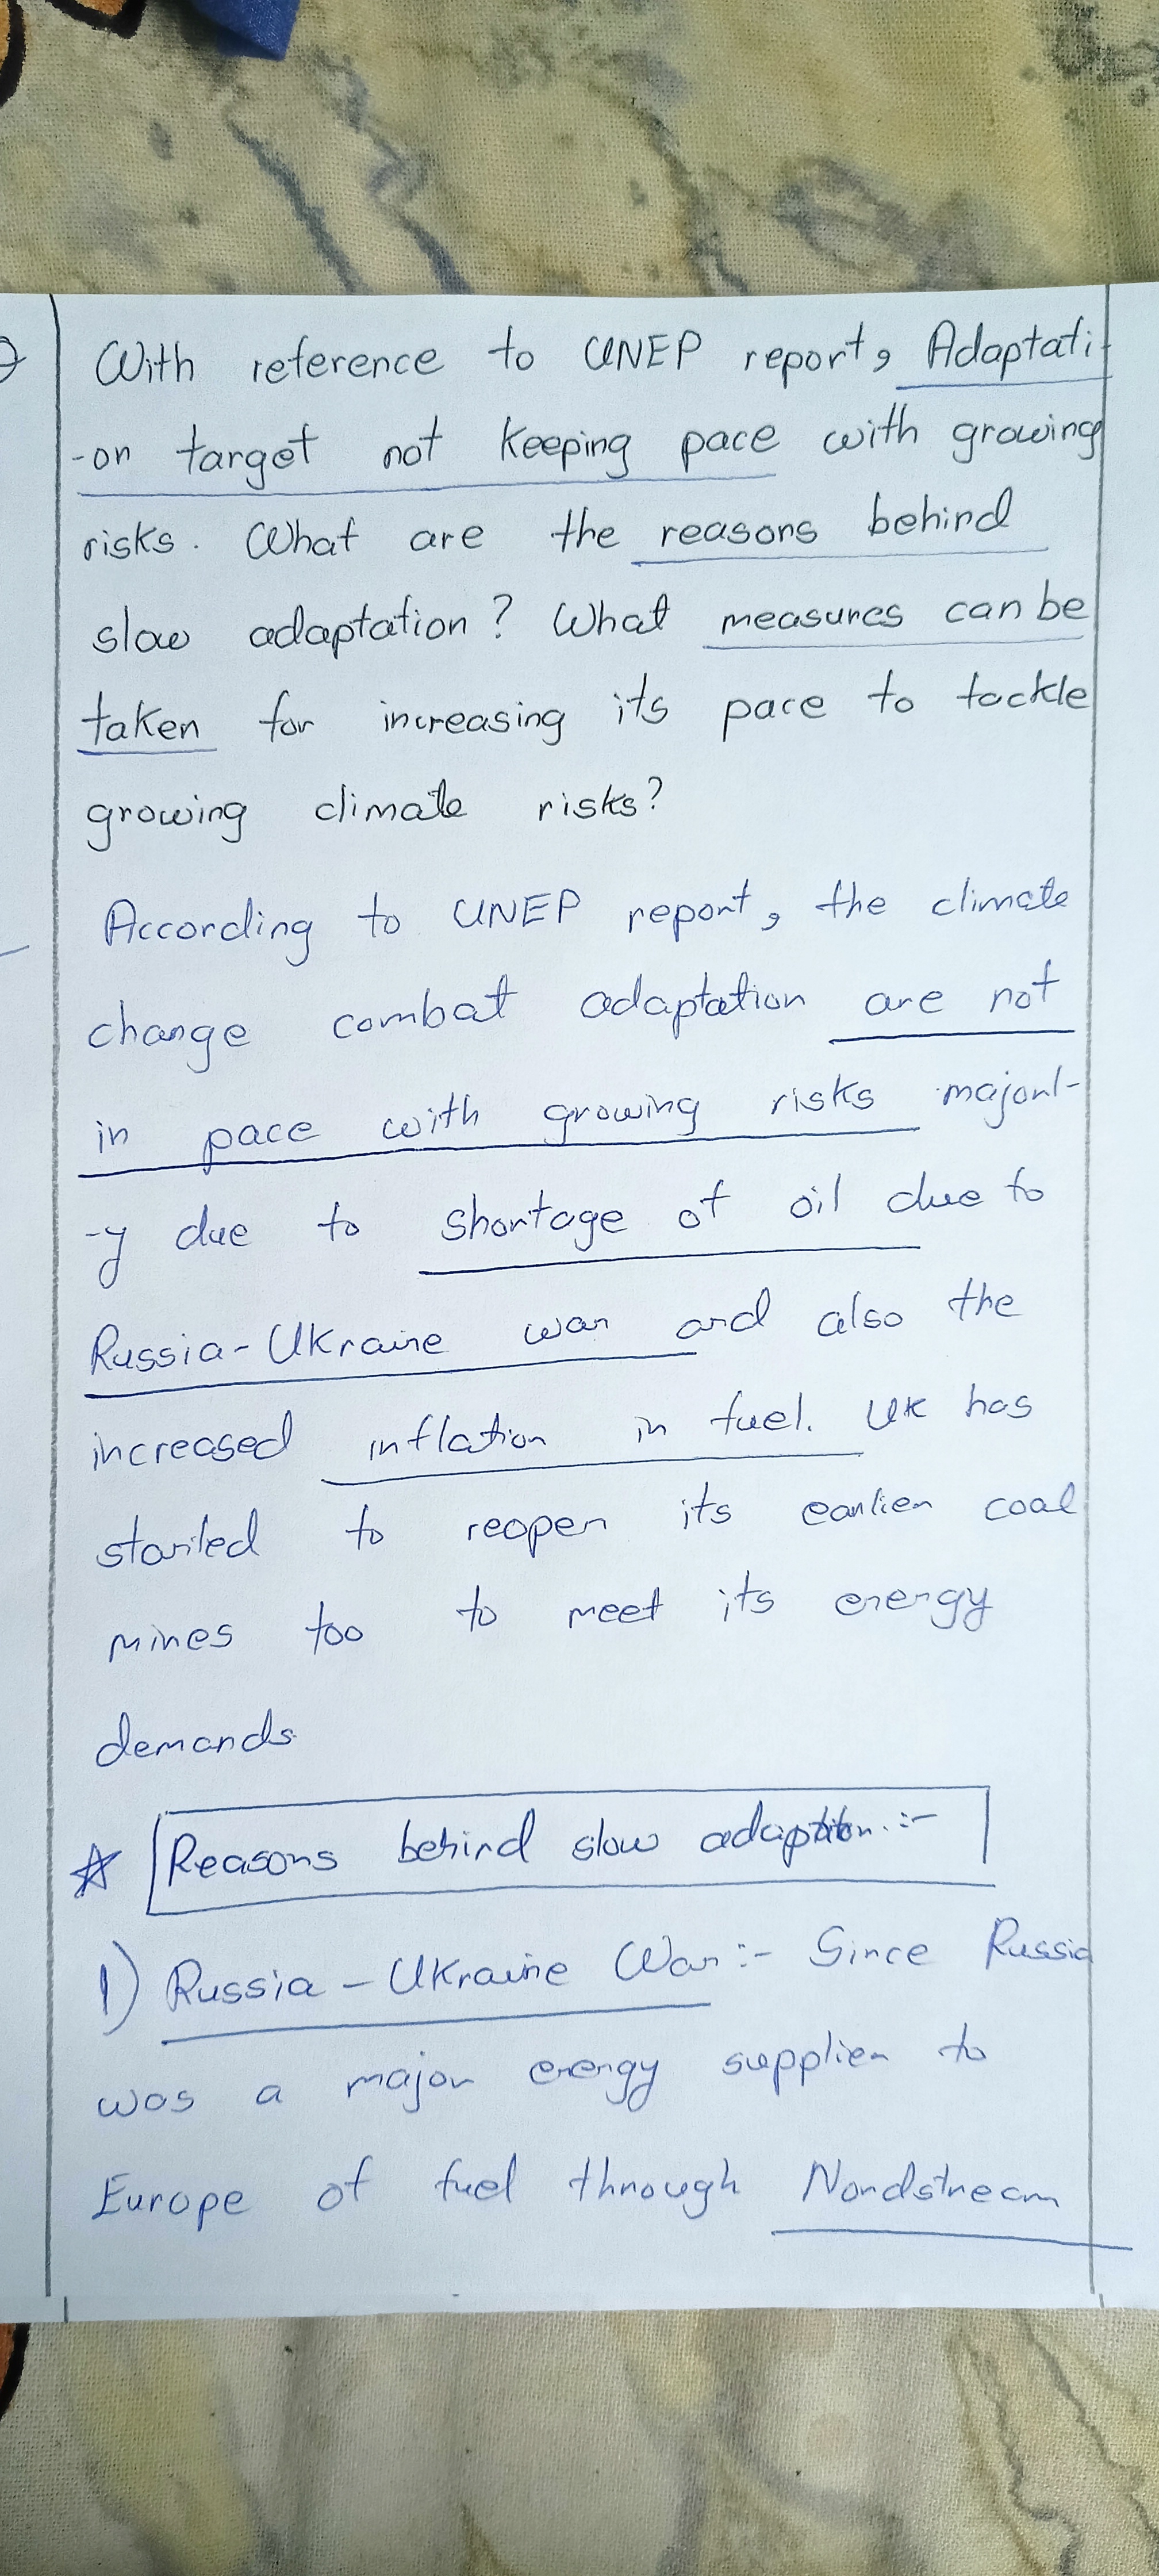 With reference to UNEP report, Adaptati
-on target not keeping pace with growing
risks. What are the reasons behind
slow adaptation? What measures can be
taken for increasing its pace to tackle
growing climate risks?
According to UNEP report, the climate
change combat adaptation are not
in pace with growing risks majorl-
-y due to shortage of oil due to
Russia-Ukraine war and also the
increased inflation in fuel. UK has
started to reopen its earlier coal
mines too to meet its energy
demands.
☆ Reasons behind slow adaption:-
1) Russia-Ukraine War:- Since Russia
was a major energy supplier to
Europe of fuel through Nordstream